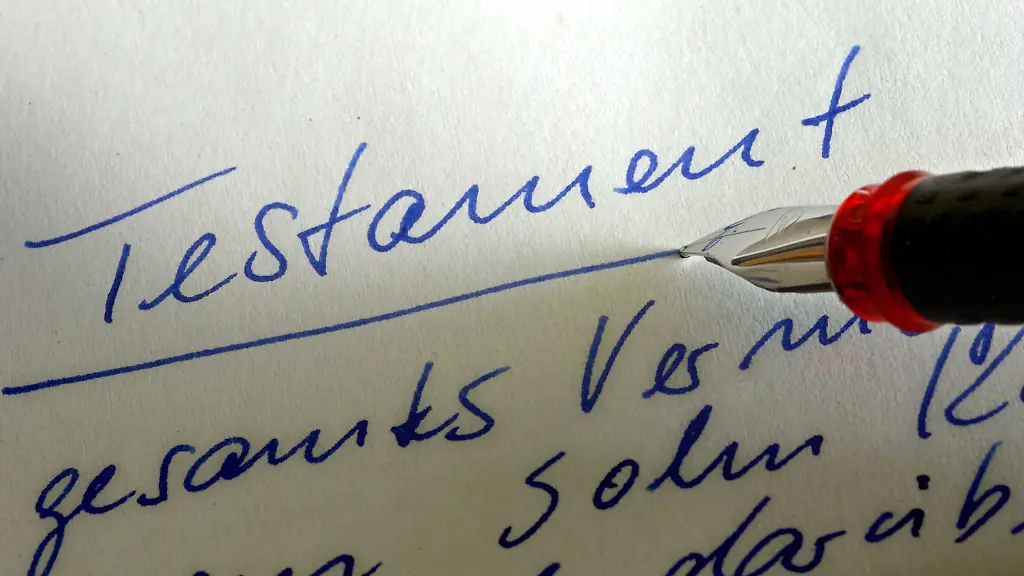 Testament
gesamtes Verm
Sohn
darüb